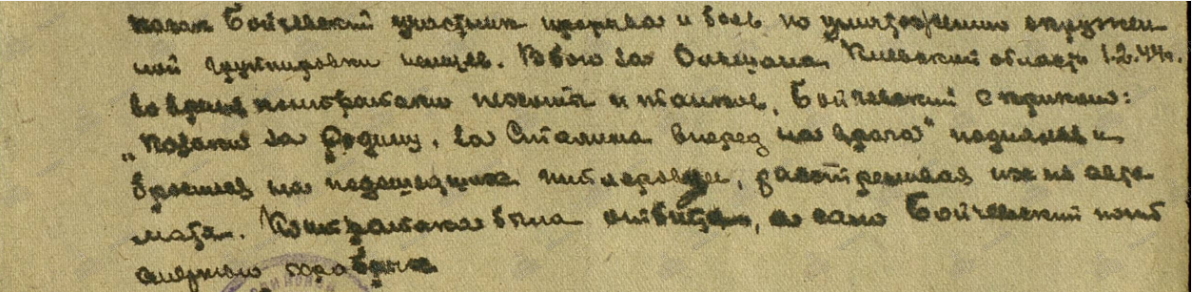 казак Бойчевский участник прорыва и боев по уничтожению окружен
ной группировки немцев. В бою за Ольшана, Киевской области 1.2.44г.
во время контратаки пехоты и танков, Бойчевский с криком:
„Казаки за Родину, за Сталина вперед на врага" поднялся и
бросился на подошедших гитлеровцев, расстреливая их из авто
мата. Контратака была отбита, а сам Бойчевский погиб
смертью храбрых